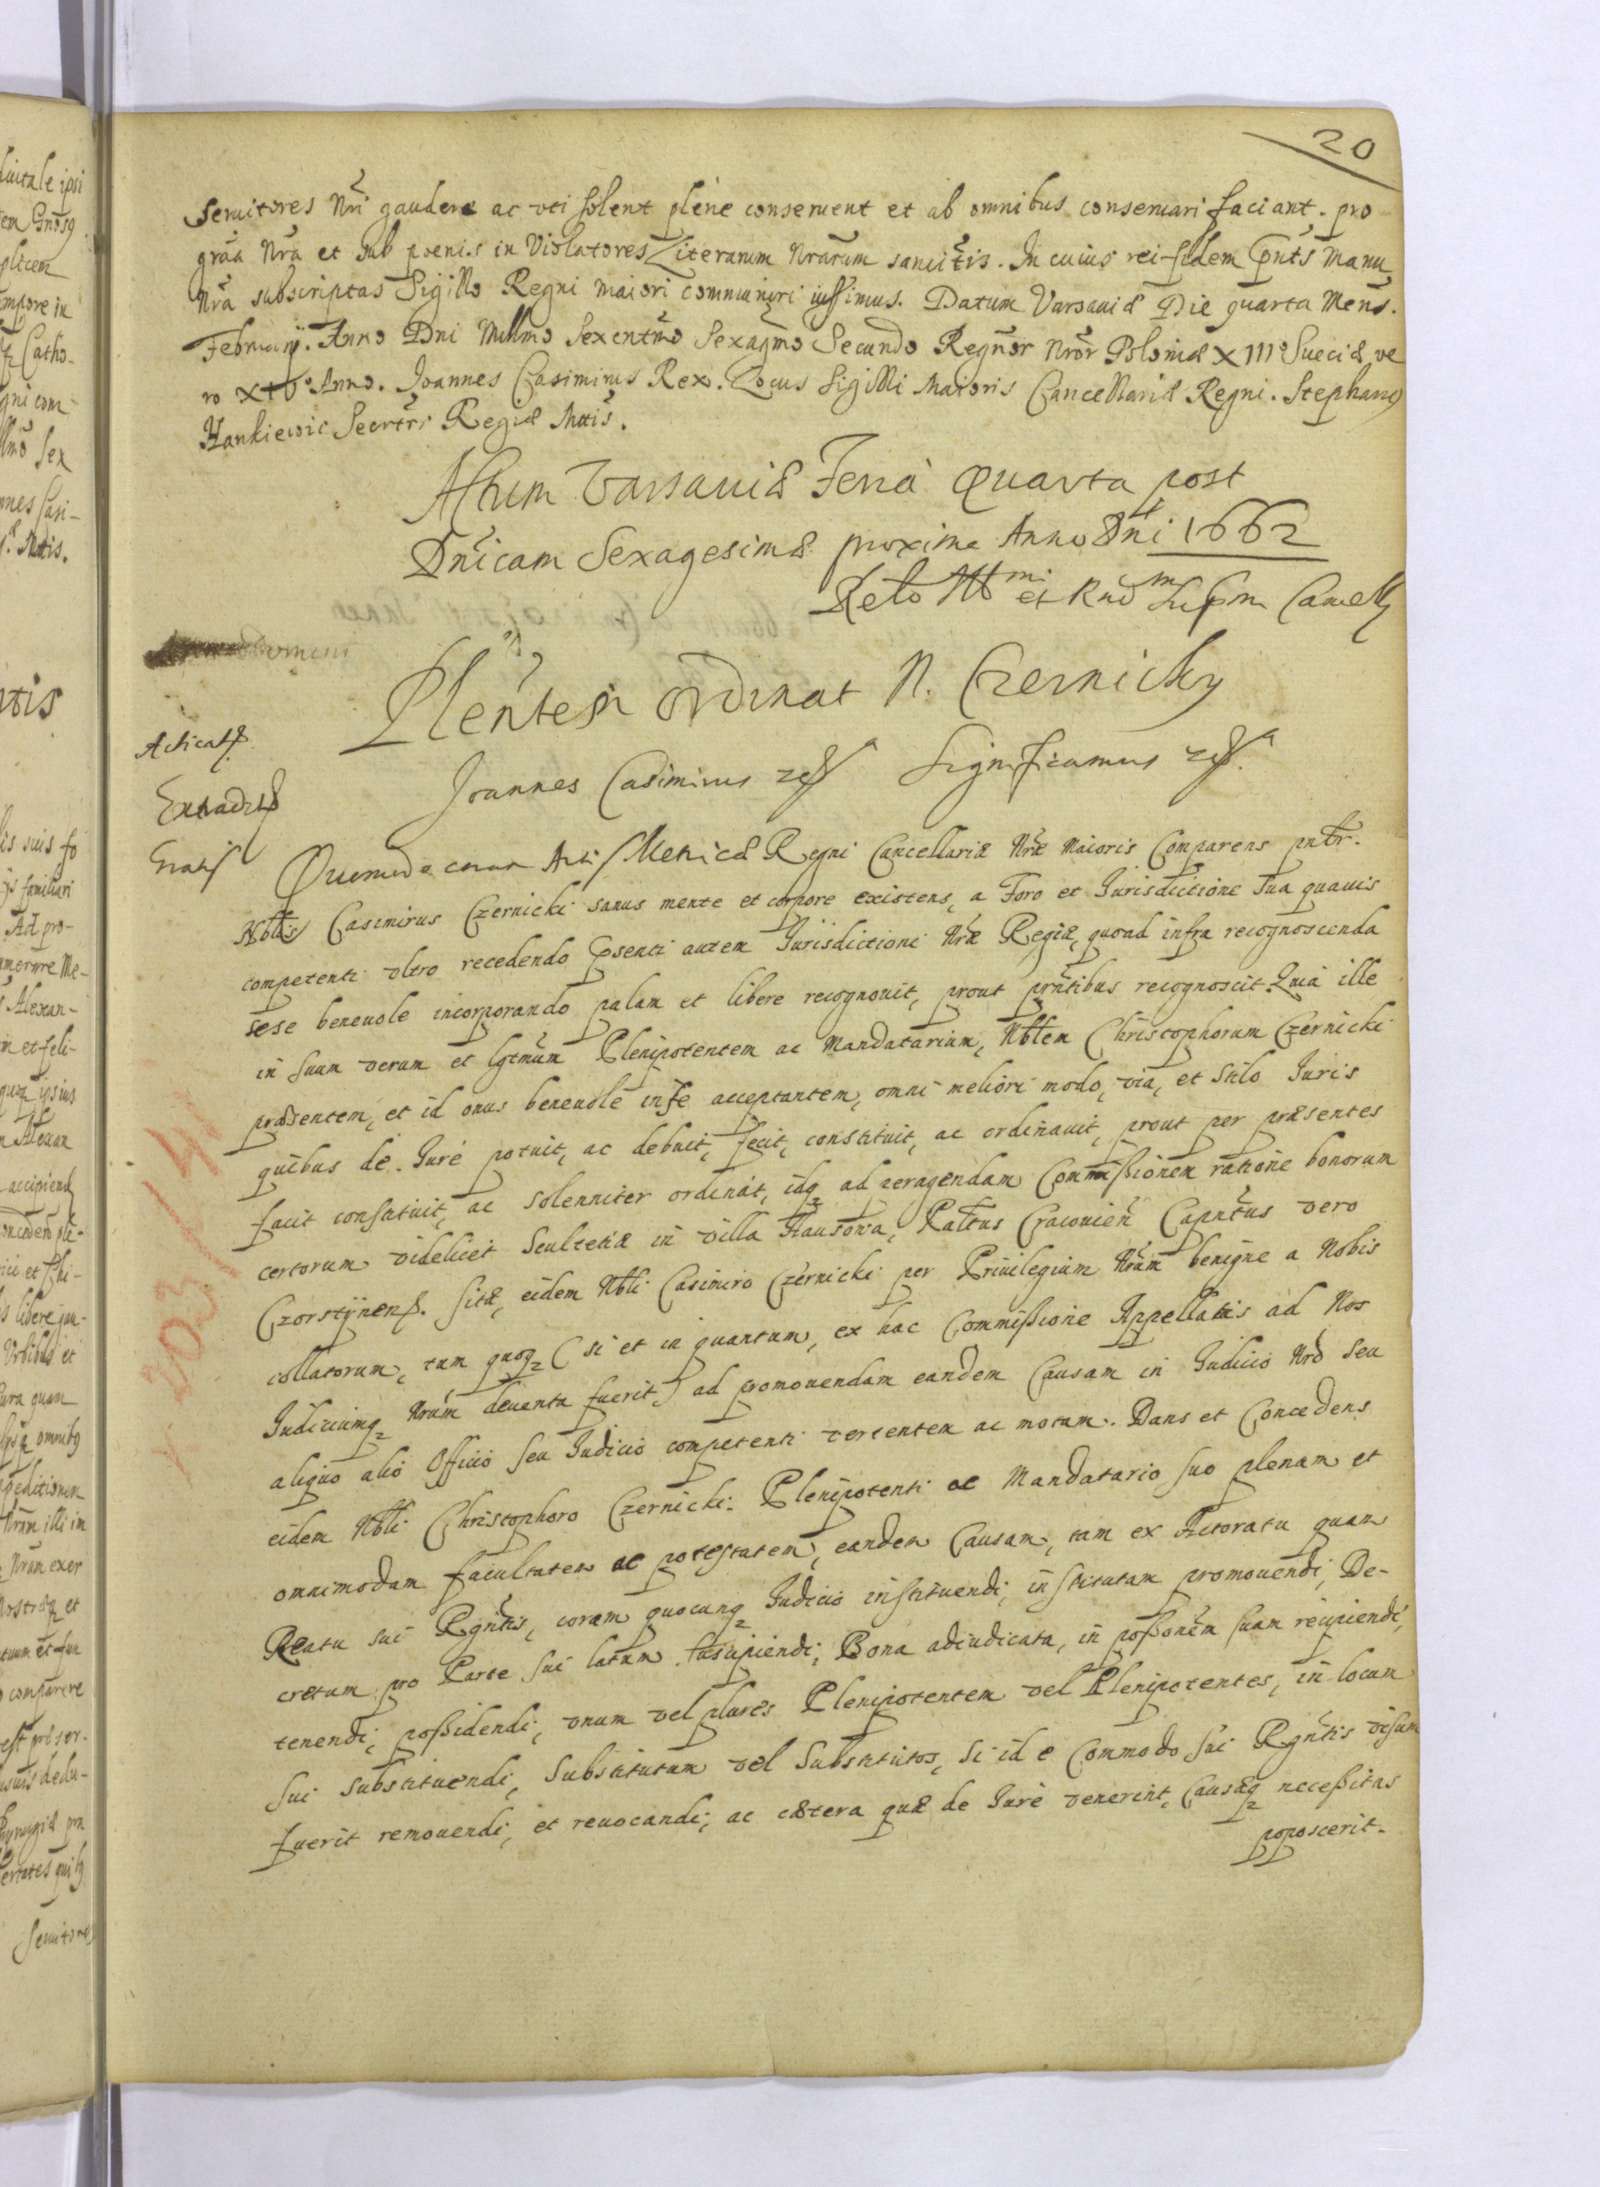 20
seruitores Nri gaudere ac vti solent plene conseruent et ab omnibus conseruari faciant. pro
graa Nra et sub poenis in Violatores Literarum Nrarum sancitis. In cuius rei fidem Pnts Manu
Nra subscriptas Sigillo Regni maiori communiri iussimus. Datum Varsauiæ Die quarta Mens.
Februarij. Anno Dni Millmo Sexcentmo Sexagmo Secundo Regnor Nror Poloniæ XIII Sueciæ ve
ro XIV Anno. Joannes Casimirus Rex. Locus Sigilli Maioris Cancellariæ Regni. Stephanus
Hankiewic Secrtrs Regiæ Mtis.
Actum Varsauiæ Feria Quarta post
Dnicam Sexagesimæ proxima Anno Dni 1662
Relo Illmi et Rnd Supm Cancell
Plentem ordinat N. Czernicky
Acticat.
Joannes Casimirus Significamus
Extradit
Gratis
Quomodo coram Actis Metricæ Regni Cancellariæ Nræ Maioris Comparens pntr.
Nblis Casimirus Czernicki sanus mente et corpore existens, a Foro et Jurisdictione sua quauis
competenti vltro recedendo psenti autem Jurisdictioni Nræ Regiæ, quoad infra recognoscenda
sese beneuole incorporando palam et libere recognouit, prout pntibus recognoscit. Quia ille
in suum verum et lgtmum Plenipotentem ac Mandatarium, Nblem Christophorum Czernicki
præsentem, et id onus beneuole in se acceptantem, omni meliori modo, via, et stilo Juris
quibus de Jure potuit, ac debuit, fecit, constituit, ac ordinauit, prout per præsentes
facit constituit, ac solenniter ordinat, idq ad peragendam Commissionem ratione bonorum
certorum videlicet Scultetiæ in villa Hausowa, Palttus Cracouien Capntus vero
Czorstynens. sitæ, eidem Nbli Casimiro Czernicki per Priuilegium Nrum benigne a Nobis
collatorum, tum quoq (si et in quantum, ex hac Commissione Appellatis ad Nos
Judiciumq Nrum deuenta fuerit) ad promouendam eandem Causam in Judicio Nro seu
aliquo alio Officio seu Judicio competenti vertentem ac motam. Dans et Concedens
eidem Nbli Christophoro Czernicki. Plenipotenti ac Mandatario suo plenam et
omnimodam facultatem ac potestatem, eandem Causam, tam ex Actoratu quam
Reatu sui Pgntis, coram quocunq Judicio instituendi, institutam promouendi, De-
cretum pro Parte sui latum suscipiendi, Bona adiudicata, in possonem suam recipiendi,
tenendi, possidendi, vnum vel plures Plenipotentem vel Plenipotentes, in locum
sui substituendi, substitutum vel substitutos, si id e Commodo sui Pgntis visum
fuerit remouendi, et reuocandi, ac cætera quæ de Jure venerint, Causæq necessitas
poposcerit.